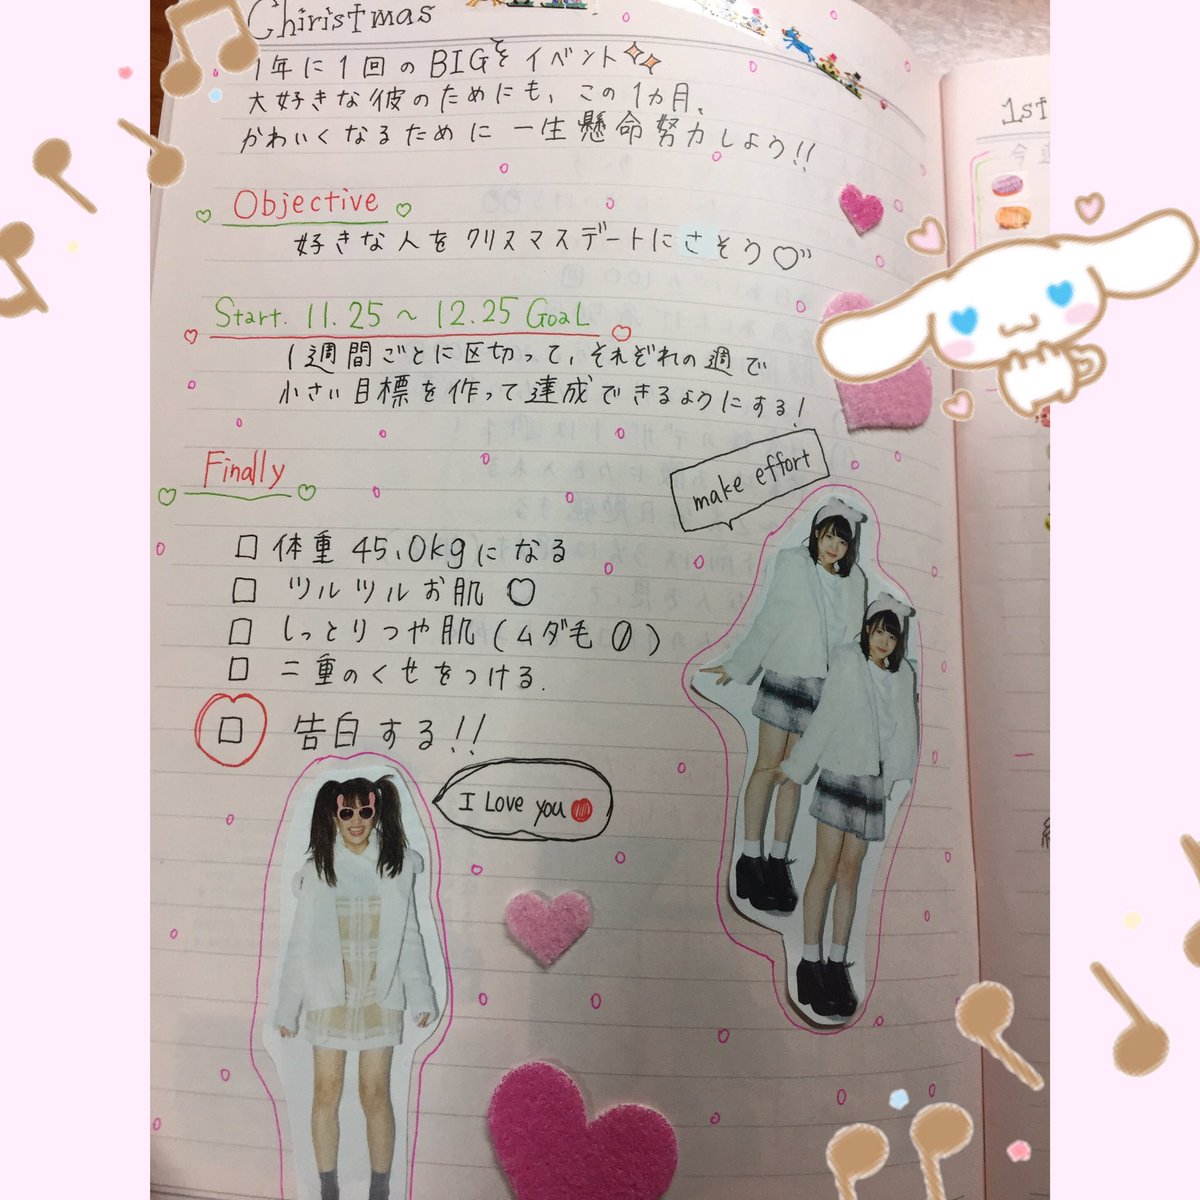 Chiristmas
1年に1回のBIGなイベント
大好きな彼のためにも、この1ヵ月、
かわいくなるために一生懸命努力しよう!!
Objective
好きな人をクリスマスデートにさそう♡
Start. 11.25〜12.25 GoaL
1週間ごとに区切って、それぞれの週で
小さい目標を作って達成できるようにする!
Finally
make effort
□ 体重 45.0kgになる
□ ツルツルお肌 ♡
□ しっとりつや肌(ムダ毛0)
□ 二重のくせをつける.
□ 告白する!!
I Love you
1st
今週